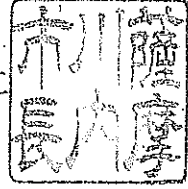 薩摩
川内
市長